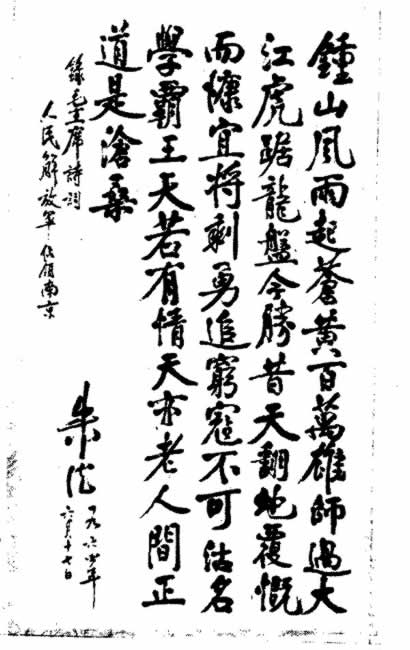 鍾山風雨起蒼黃百萬雄師過大
江虎踞龍盤今勝昔天翻地覆慨
而慷宜將剩勇追窮寇不可沽名
學霸王天若有情天亦老人間正
道是滄桑
錄毛主席詩詞
人民解放軍佔領南京
朱德
六月十七日